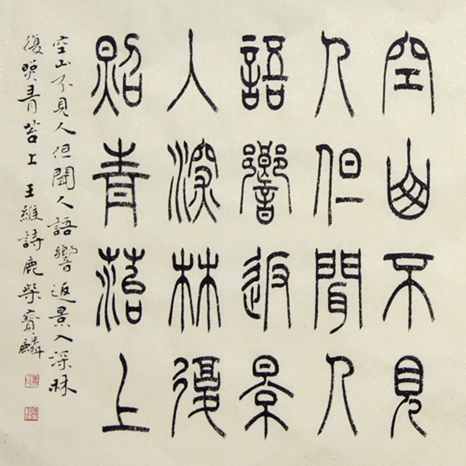 空山不見
人但聞人
語響返景
入深林復
照青菭上
空山不見人但聞人語響返景入深林
復照青苔上 王維詩鹿柴寶麟